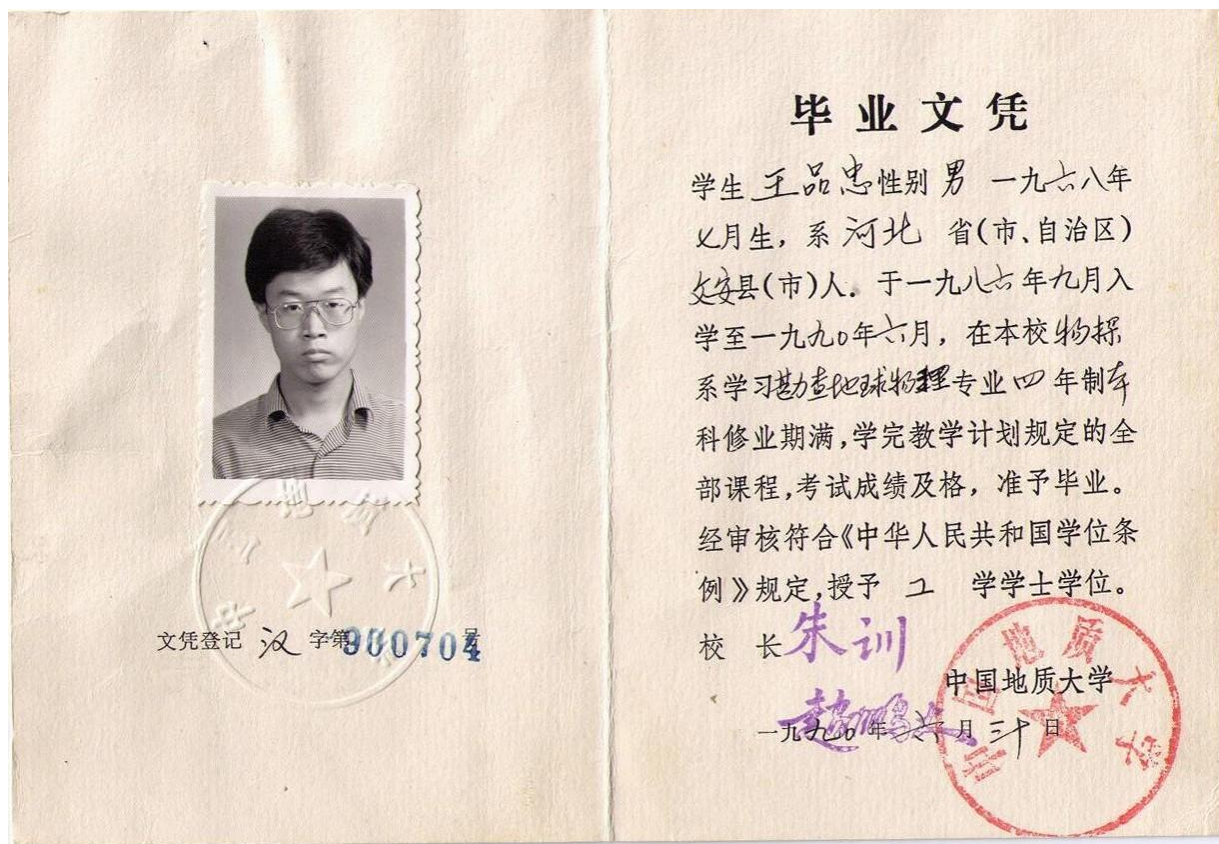 文凭登记 汉 字第900704号
毕业文凭
学生 王品忠 性别 男 一九六八年
七月生，系 河北 省（市、自治区）
文安县（市）人．于一九八六年九月入
学至一九九〇年六月，在本校 物探
系学习勘查地球物理专业四年制本
科修业期满，学完教学计划规定的全
部课程，考试成绩及格，准予毕业。
经审核符合《中华人民共和国学位条
例》规定，授予 工 学学士学位。
校 长 朱训
赵鹏大
中国地质大学
一九九〇年 六 月 三十 日
中国地质大学